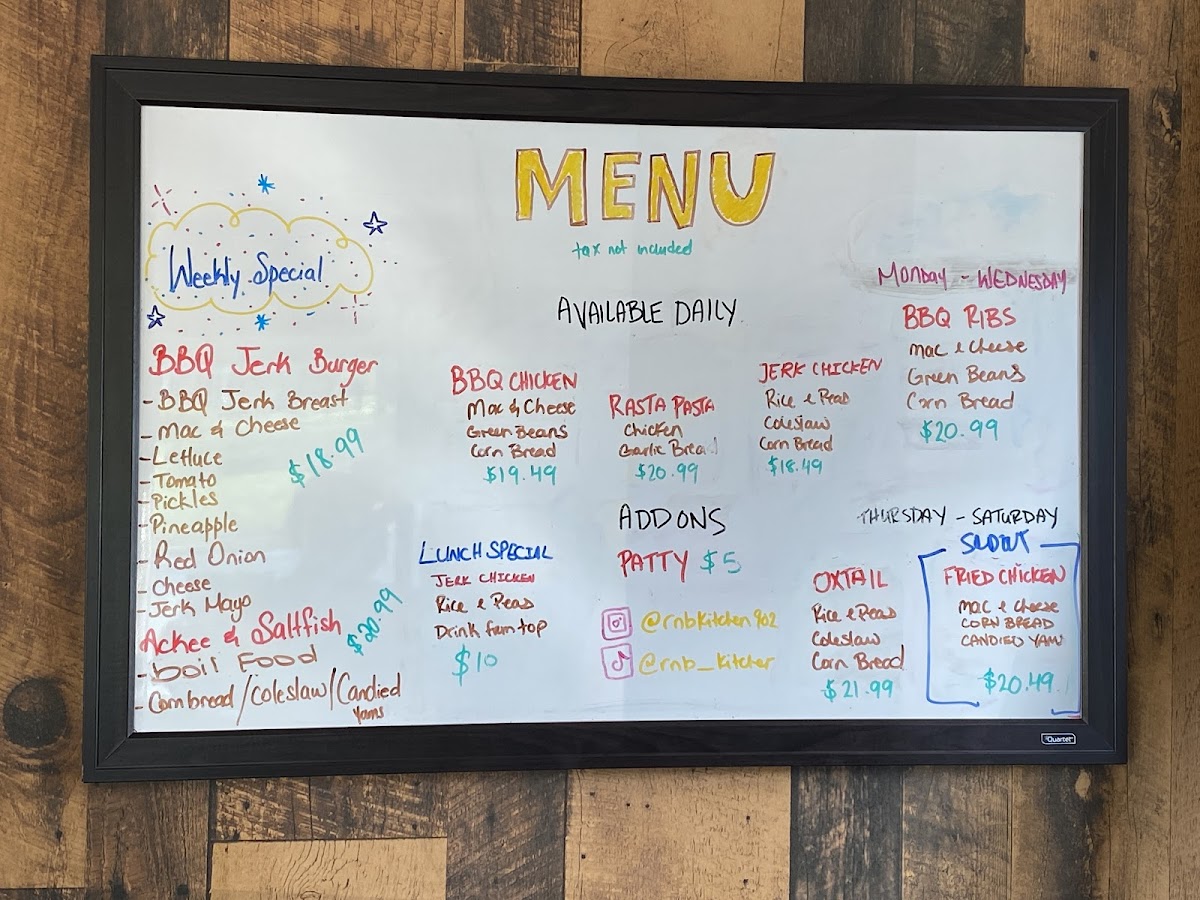 MENU
tax not included
Weekly Special
BBQ Jerk Burger
- BBQ Jerk Breast
- Mac & Cheese
- Lettuce
- Tomato
- Pickles
- Pineapple
- Red Onion
- Cheese
- Jerk Mayo
$18.99
Ackee & Saltfish
$20.99
- boil Food
- Cornbread/coleslaw/Candied
Yams
AVAILABLE DAILY
BBQ CHICKEN
Mac & Cheese
Green Beans
Corn Bread
$19.49
RASTA PASTA
Chicken
Garlic Bread
$20.99
JERK CHICKEN
Rice & Peas
Coleslaw
Corn Bread
$18.49
MONDAY - WEDNESDAY
BBQ RIBS
Mac & Cheese
Green Beans
Corn Bread
$20.99
LUNCH SPECIAL
JERK CHICKEN
Rice & Peas
Drink
$10
ADD ONS
PATTY $5
@rnbkitchen902
@rnb_kitchen
THURSDAY - SATURDAY
OXTAIL
Rice & Peas
Coleslaw
Corn Bread
$21.99
FRIED CHICKEN
Mac & Cheese
CORN BREAD
CANDIED YAM
$20.49
Quartet